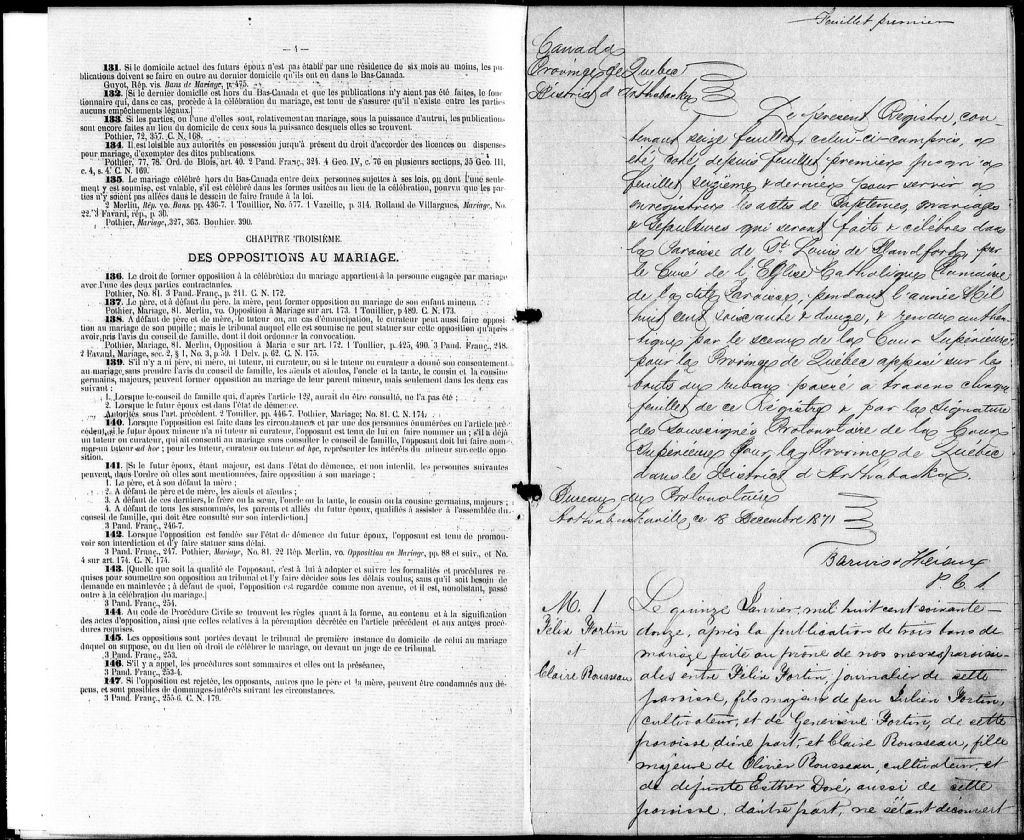 — 4 —
131. Si le domicile actuel des futurs époux n'est pas établi par une résidence de six mois au moins, les pu-
blications doivent se faire en outre au dernier domicile qu'ils ont eu dans le Bas-Canada.
Guyot, Rép. vis. Bans de Mariage, p. 475.
132. [Si le dernier domicile est hors du Bas-Canada et que les publications n'y aient pas été faites, le fonc-
tionnaire qui, dans ce cas, procède à la célébration du mariage, est tenu de s'assurer qu'il n'existe entre les parties
aucuns empêchements légaux.]
133. Si les parties, ou l'une d'elles sont, relativement au mariage, sous la puissance d'autrui, les publications
sont encore faites au lieu du domicile de ceux sous la puissance desquels elles se trouvent.
Pothier, 72, 357. C. N. 168.
134. Il est loisible aux autorités en possession jusqu'à présent du droit d'accorder des licences ou dispenses
pour mariage, d'exempter des dites publications.
Pothier, 77, 78. Ord. de Blois, art. 40. 2 Pand. Franç., 324. 4 Geo. IV, c. 76 en plusieurs sections, 35 Geo. III,
c. 4, s. 4. C. N. 169.
135. Le mariage célébré hors du Bas-Canada entre deux personnes sujettes à ses lois, ou dont l'une seule-
ment y est soumise, est valable, s'il est célébré dans les formes usitées au lieu de la célébration, pourvu que les par-
ties n'y soient pas allées dans le dessein de faire fraude à la loi.
2 Merlin, Rép. vo. Bans. pp. 436-7. 1 Touillier, No. 577. 1 Vazeille, p. 314. Rolland de Villargues, Mariage, No.
22. 3 Favard, rép., p. 30.
Pothier, Mariage, 327, 363. Bouhier. 390.
CHAPITRE TROISIÈME.
DES OPPOSITIONS AU MARIAGE.
136. Le droit de former opposition à la célébration du mariage appartient à la personne engagée par mariage
avec l'une des deux parties contractantes.
Pothier, No. 81. 3 Pand. Franç., p. 241. C. N. 172.
137. Le père, et à défaut du père, la mère, peut former opposition au mariage de son enfant mineur.
Pothier, Mariage, 81. Merlin, vo. Opposition à Mariage sur art. 173. 1 Touillier, p. 489. C. N. 173.
138. A défaut de père et de mère, le tuteur ou, au cas d'émancipation, le curateur peut aussi faire opposi-
tion au mariage de son pupille; mais le tribunal auquel elle est soumise ne peut statuer sur cette opposition qu'après
avoir pris l'avis du conseil de famille, dont il doit ordonner la convocation.
Pothier, Mariage, 81. Merlin, Opposition à Maria e sur art. 172. 1 Toullier, p. 425, 490. 3 Pand. Franç., 248.
2 Favard, Mariage, sec. 2, § 1, No. 3, p. 59. 1 Delv. p. 62. C. N. 175.
139. S'il n'y a ni père, ni mère, ni tuteur, ni curateur, ou si le tuteur ou curateur a donné son consentement
au mariage, sans prendre l'avis du conseil de famille, les aïeuls et aïeules, l'oncle et la tante, le cousin et la cousine
germains, majeurs, peuvent former opposition au mariage de leur parent mineur, mais seulement dans les deux cas
suivant :
1. Lorsque le conseil de famille qui, d'après l'article 122, aurait du être consulté, ne l'a pas été ;
2. Lorsque le futur époux est dans l'état de démence.
Autorités sous l'art. précédent. 2 Touiller, pp. 446-7. Pothier, Mariage; No. 81. C. N. 174.
140. Lorsque l'opposition est faite dans les circonstances et par une des personnes énumérées en l'article pré-
cédent, si le futur époux mineur n'a ni tuteur ni curateur, l'opposant est tenu de lui en faire nommer un ; s'il a déjà
un tuteur ou curateur, qui ait consenti au mariage sans consulter le conseil de famille, l'opposant doit lui faire nom-
mer un tuteur ad hoc ; pour les tuteur, curateur ou tuteur ad hoc, représenter les intérêts du mineur sur cette oppo-
sition.
141. [Si le futur époux, étant majeur, est dans l'état de démence, et non interdit, les personnes suivantes
peuvent, dans l'ordre où elles sont mentionnées, faire opposition à son mariage :
1. Le père, et à son défaut la mère ;
2. A défaut de père et de mère, les aïeuls et aïeules ;
3. A défaut de ces derniers, le frère ou la sœur, l'oncle ou la tante, le cousin ou la cousine germains, majeurs ;
4. A défaut de tous les susnommés, les parents et alliés du futur époux, qualifiés à assister à l'assemblée du
conseil de famille, qui doit être consulté sur son interdiction.]
3 Pand. Franç., 246-7.
142. Lorsque l'opposition est fondée sur l'état de démence du futur époux, l'opposant est tenu de promou-
voir son interdiction et d'y faire statuer sans délai.
3 Pand. Franç., 247. Pothier, Mariage, No. 81. 22 Rép. Merlin, vo. Opposition au Mariage, pp. 88 et suiv., et No.
4 sur art. 174. C. N. 174.
143. [Quelque que soit la qualité de l'opposant, c'est à lui à adopter et suivre les formalités et procédures re-
quises pour soumettre son opposition au tribunal et l'y faire décider sous les délais voulus, sans qu'il soit besoin de
demande en mainlevée ; à défaut de quoi, l'opposition est regardée comme non avenue, et il est, nonobstant, passé
outre à la célébration du mariage.]
3 Pand. Franç., 254.
144. Au code de Procédure Civile se trouvent les règles quant à la forme, au contenu et à la signification
des actes d'opposition, ainsi que celles relatives à la péremption décrétée en l'article précédent et aux autres procé-
dures requises.
145. Les oppositions sont portées devant le tribunal de première instance du domicile de celui au mariage
duquel on s'oppose, ou du lieu où doit se célébrer le mariage, ou devant un juge de ce tribunal.
3 Pand. Franç., 253.
146. S'il y a appel, les procédures sont sommaires et elles ont la préséance,
3 Pand. Franç., 253-4.
147. Si l'opposition est rejetée, les opposants, autres que le père et la mère, peuvent être condamnés aux dé-
pens, et sont passibles de dommages-intérêts suivant les circonstances.
3 Pand. Franç., 255-6. C. N. 179.
Feuillet premier
Canada
Province de Québec
District d'Arthabaska
Le présent Registre, con-
tenant seize feuillets, celui-ci compris, a
été coté depuis feuillet premier jusqu'au
feuillet seizième & dernier pour servir à
enregistrer les actes de Baptêmes, mariages
& Sépultures qui seront faits & célébrés dans
la Paroisse de St. Louis de Blandford, par
le Curé de l'Eglise Catholique Romaine
de la dite Paroisse, pendant l'année Mil
huit cent soixante & douze, & rendu authen-
tique par le sceau de la Cour Supérieure
pour la Province de Québec apposé sur les
bouts du ruban passé à travers chaque
feuillet de ce Registre & par la signature
des Soussignés Protonotaire de la Cour
Supérieure pour la Province de Québec
dans le District d'Arthabaska.
Bureau du Protonotaire
Arthabaskaville ce 18 Decembre 1871
Barwis & Héroux
P. C. S.
M. 1
Félix Fortin
et
Claire Rousseau
Le quinze Janvier, mil huit cent soixante-
douze, après la publication de trois bans de
mariage faite au prône de nos messes paroissi-
ales entre Félix Fortin, journalier de cette
paroisse, fils majeur de feu Julien Fortin,
cultivateur, et de Geneviève Fortin, de cette
paroisse d'une part, et Claire Rousseau, fille
majeure de Olivier Rousseau, cultivateur, et
de défunte Esther Doré, aussi de cette
paroisse, d'autre part, ne s'étant découvert